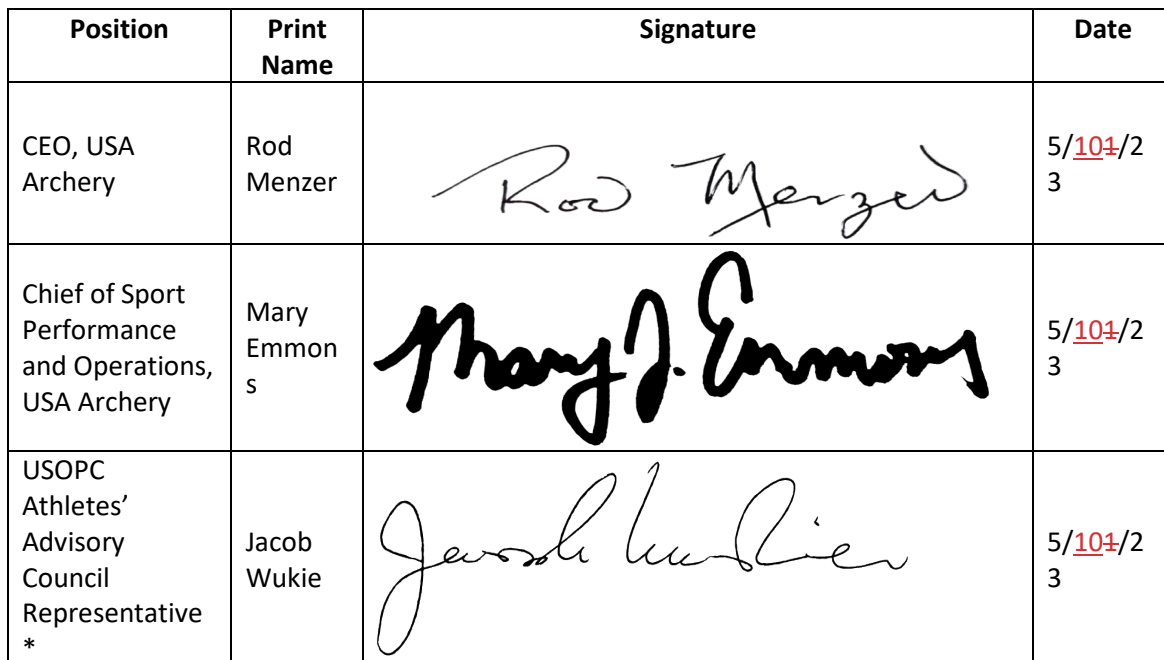 Position Print Name Signature Date
CEO, USA Archery Rod Menzer Rod Menzer 5/101/23
Chief of Sport Performance and Operations, USA Archery Mary Emmons Mary J. Emmons 5/101/23
USOPC Athletes’ Advisory Council Representative* Jacob Wukie 5/101/23